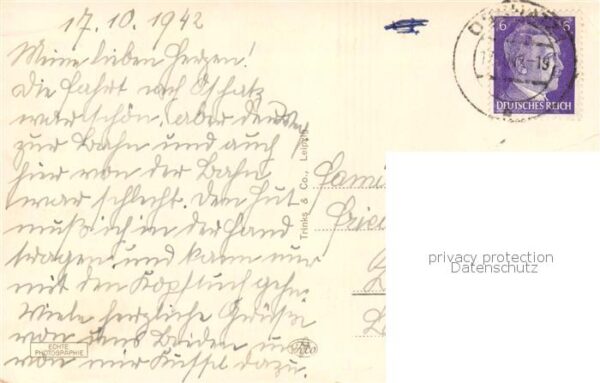 17.10.1942
Meine lieben Herzen!
Die Fahrt nach Oschatz
war schön. Aber der
zur Bahn und auch
hier von der Bahn
war schlecht. Den Hut
muß ich in der Hand
tragen und kann nur
mit den Kopftuch gehn.
Viele herzliche Grüße
von uns Beiden und
von mir Kussel dazu.
ECHTE
PHOTOGRAPHIE
Trinks & Co., Leipzig
Fami
6 6
DEUTSCHES REICH
privacy protection
Datenschutz